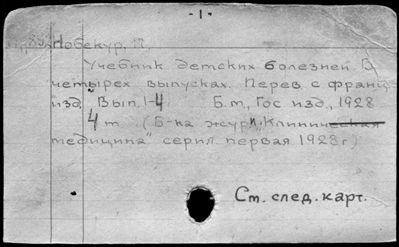 - 1 -
Нобекур, П,
Учебник детских болезней. В
четырех выпусках. Перев. с франц.
изд. Вып. 1-4 Б.м, Гос изд., 1928
4 т. (Б-ка журн. "Клиническая
медицина" серия первая 1928 г)
Ст. след. карт.